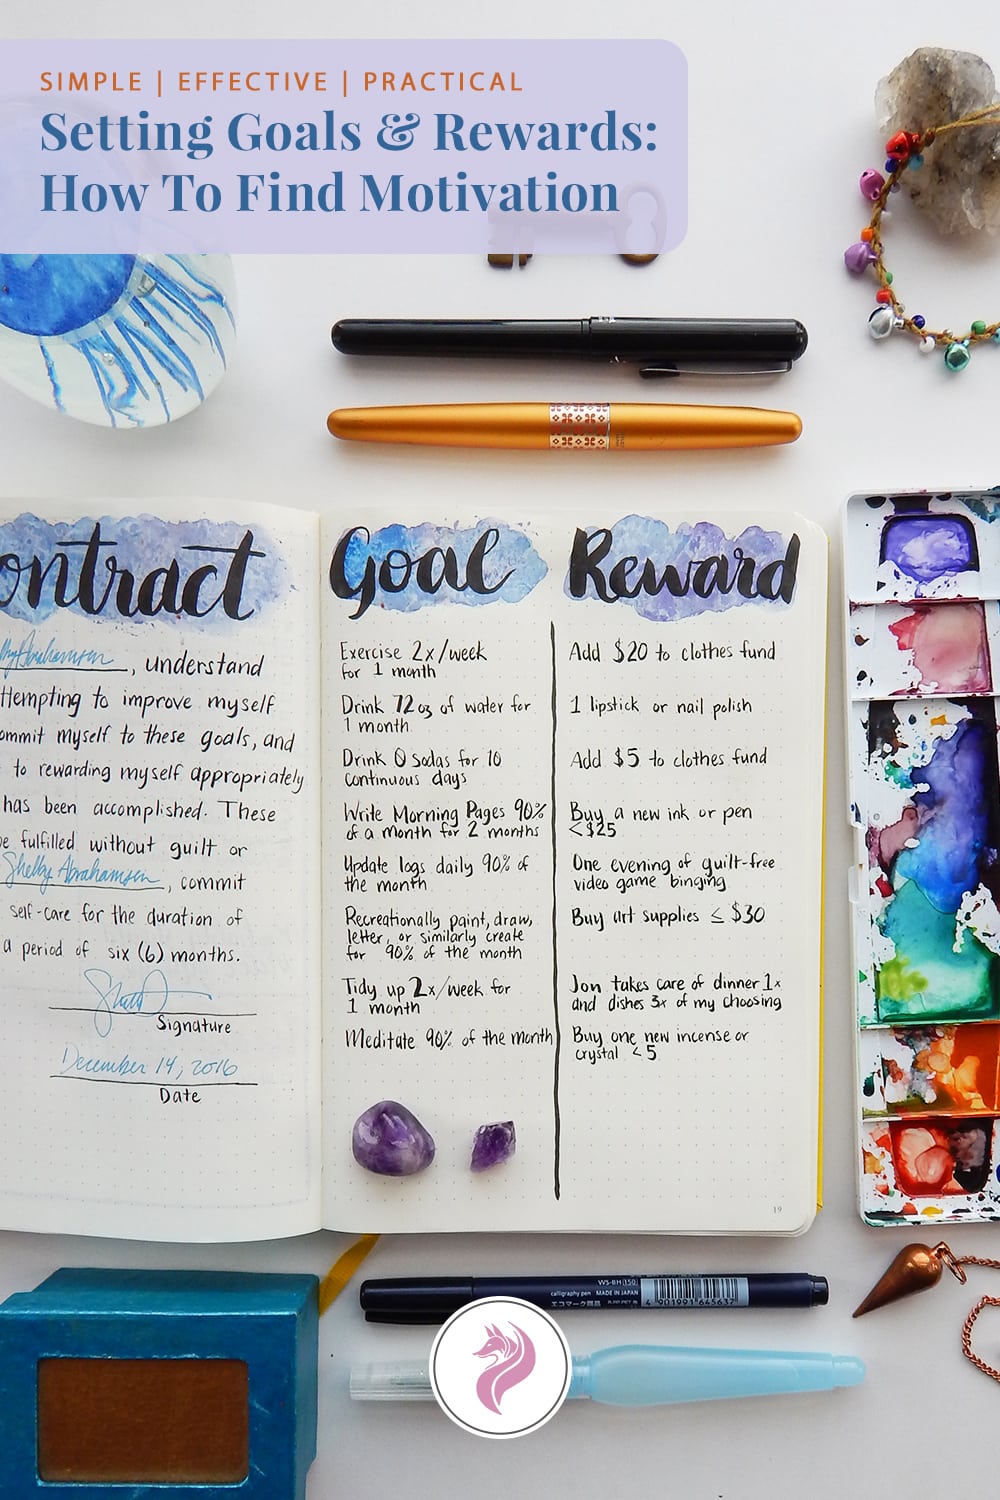 SIMPLE | EFFECTIVE | PRACTICAL
Setting Goals & Rewards:
How To Find Motivation
ontract
Abrahamsen, understand
ttempting to improve myself
ommit myself to these goals, and
to rewarding myself appropriately
has been accomplished. These
be fulfilled without guilt or
Shelby Abrahamsen, commit
self-care for the duration of
a period of six (6) months.
Signature
December 14, 2016
Date
Goal
Reward
Exercise 2x/week
for 1 month
Add $20 to clothes fund
Drink 72oz of water for
1 month
1 lipstick or nail polish
Drink 0 Sodas for 10
continuous days
Add $5 to clothes fund
Write Morning Pages 90%
of a month for 2 months
Buy a new ink or pen
<$25
Update logs daily 90% of
the month
One evening of guilt-free
video game binging
Recreationally paint, draw,
letter, or similarly create
for 90% of the month
Buy art supplies ≤ $30
Tidy up 2x/week for
1 month
Jon takes care of dinner 1x
and dishes 3x of my choosing
Meditate 90% of the month
Buy one new incense or
crystal <5
19
WS-BH(150)
calligraphy pen MADE IN JAPAN
エコマーク商品
4 901991 645637